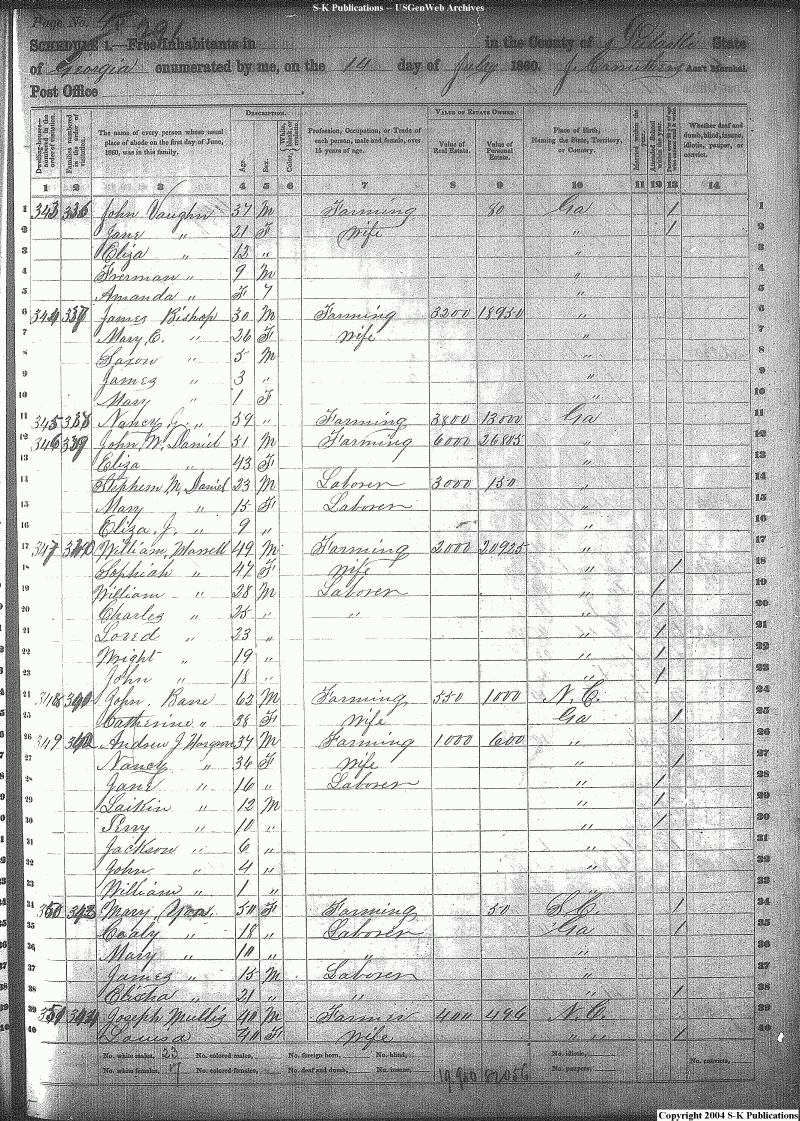 S-K Publications -- USGenWeb Archives
Page No.
SCHEDULE 1.—Free Inhabitants in in the County of Pulaski State
of Georgia enumerated by me, on the 14 day of July 1860. Ass't Marshal.
Post Office
DESCRIPTION. VALUE OF ESTATE OWNED.
Dwelling-houses—numbered in the order of visitation. Families numbered in the order of visitation. The name of every person whose usual place of abode on the first day of June, 1860, was in this family. Age. Sex. Color, White, black, or mulatto. Profession, Occupation, or Trade of each person, male and female, over 15 years of age. Value of Real Estate. Value of Personal Estate. Place of Birth, Naming the State, Territory, or Country. Married within the year. Attended School within the year. Whether deaf and dumb, blind, insane, idiotic, pauper, or convict.
1 2 3 4 5 6 7 8 9 10 11 12 13 14
1 343 336 John Vaughn 37 M Farming 80 Ga 1 1
2 Jane " 21 F Wife " 1 2
3 Eliza " 12 " " 3
4 Freeman " 9 M " 4
5 Amanda " F 7 " 5
6 344 337 James Bishop 30 M Farming 3200 18950 " 6
7 Mary E. " 26 F Wife " 7
8 Saxon " 5 M " 8
9 James " 3 " " 9
10 Mary " 1 F " 10
11 345 338 Nancy J. " 59 " Farming 3800 13000 Ga 11
12 346 339 John W. Daniel 51 M Farming 6000 26805 " 12
13 Eliza " 43 F " 13
14 Stephem M. Daniel 23 M Laborer 3000 150 " 14
15 Mary " 15 F Laborer " 15
16 Eliza J. " 9 " " 16
17 347 340 William Harrell 49 M Farming 2000 20925 " 17
18 Sophiah " 47 F Wife " 1 18
19 William " 28 M Laborer " 1 19
20 Charles " 25 " " " 1 20
21 Loved " 23 " " 1 21
22 Wright " 19 " " 1 22
23 John " 18 " " 1 23
24 348 John Barre 62 M Farming 550 1000 N. C. 24
25 Catherine " 28 F Wife Ga 1 25
26 349 342 Andrew J 37 M Farming 1000 600 " 26
27 Nancy " 36 F Wife " 1 27
28 Jane " 16 " Laborer " 1 28
29 Laikin " 12 M " 1 29
30 Perry " 10 " " 1 30
31 Jackson " 6 " " 31
32 John " 4 " " 32
33 William " 1 " " 33
34 350 343 Mary 50 F Farming 50 S. C. 1 34
35 Coaly " 18 " Laborer Ga 1 35
36 Mary " 10 " " " 36
37 James " 15 M Laborer " 37
38 Elisha " 21 " " " 1 38
39 351 344 Joseph Mullis 40 M Farmer 400 496 N. C. 39
40 Louisa 40 F Wife " " 1 40
No. white males, 23 No. colored males, No. foreign born, No. blind, No. idiotic, No. convicts,
No. white females, 17 No. colored females, No. deaf and dumb, No. insane, 19,950 82056 No. paupers,
Copyright 2004 S-K Publications